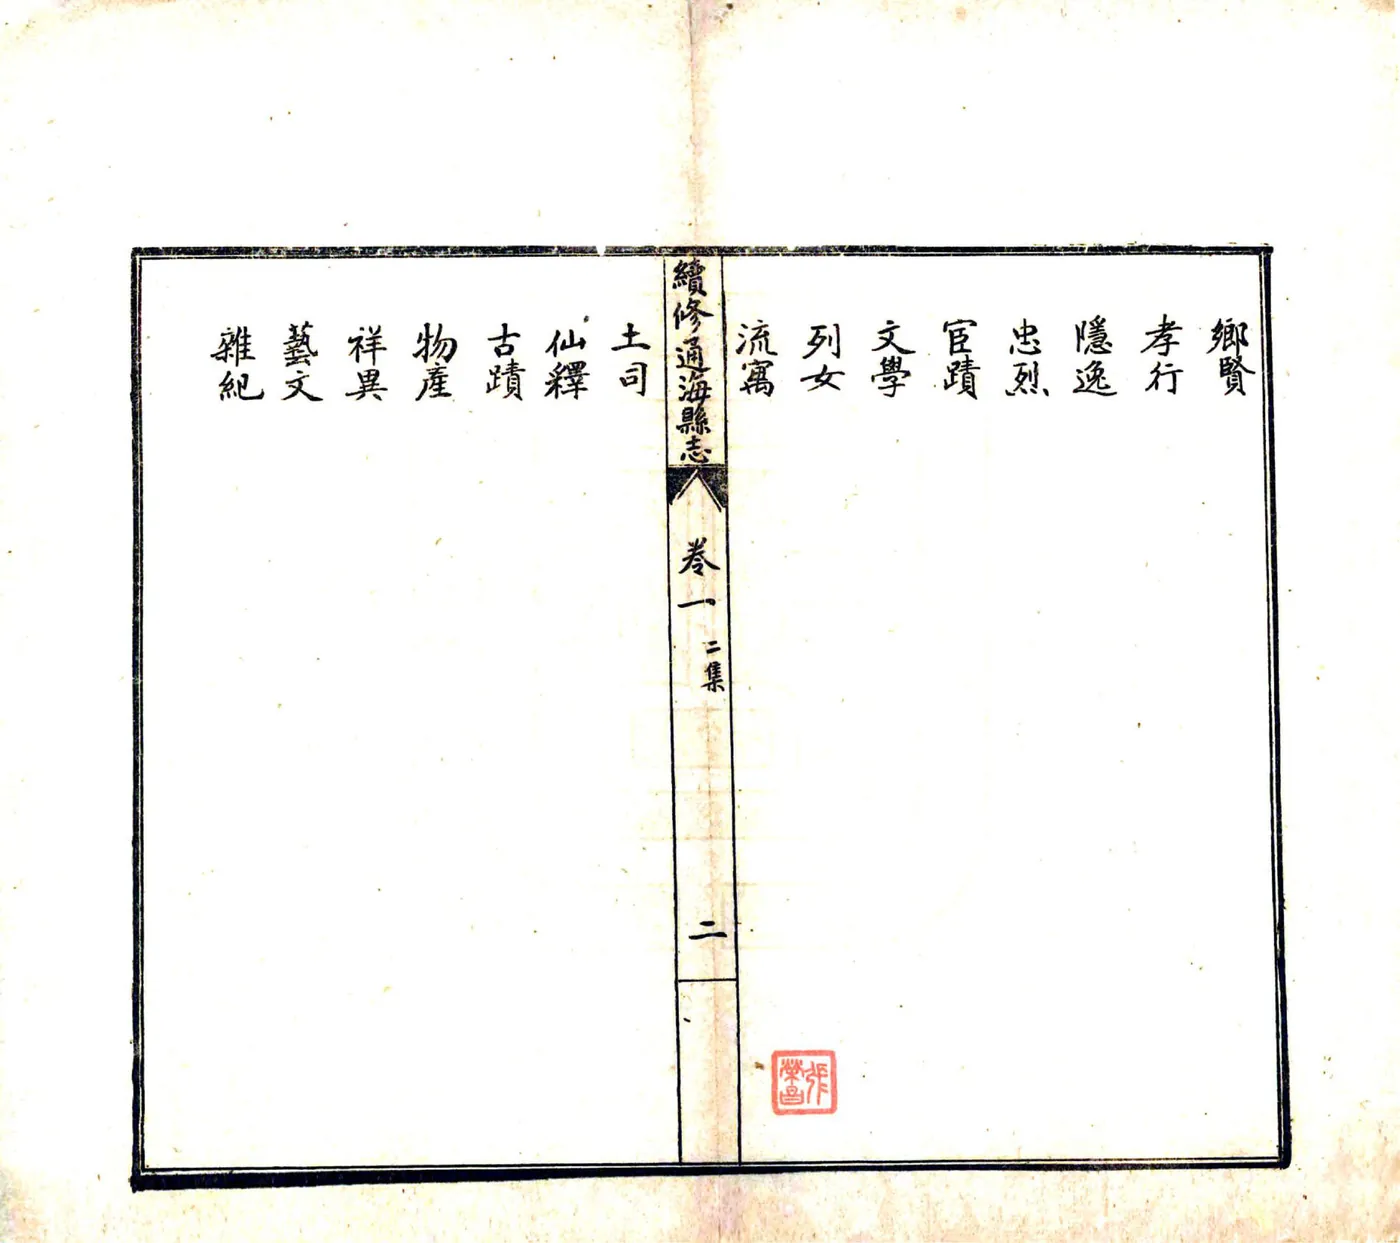 鄉賢
孝行
隱逸
忠烈
宦蹟
文學
列女
流寓
續修通海縣志
卷一
二集
二
土司
仙釋
古蹟
物產
祥異
藝文
雜紀
張榮昌